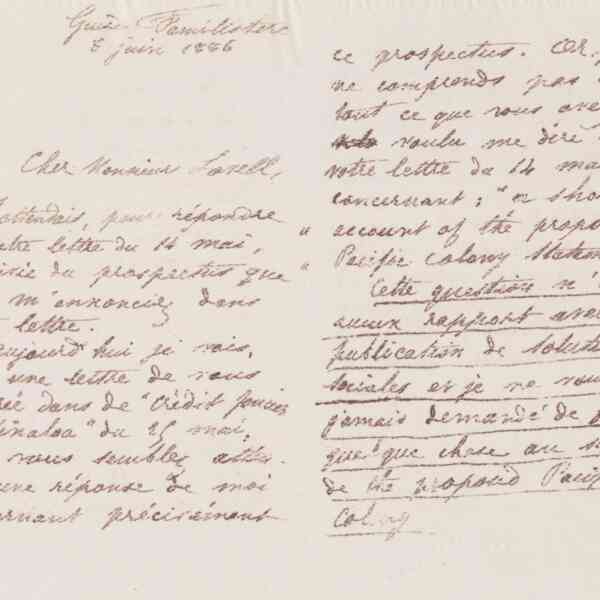 Guise Familistere
8 juin 1886
Cher Monsieur Lovell,
J'attendais, pour répondre
votre lettre du 14 mai,
copie du prospectus que
m'annonciez dans
lettre.
aujourd'hui je vois,
une lettre de vous
dans de "Crédit foncier
Sinaloa" du 25 mai,
vous semblez atten-
une réponse de moi
concernant précisément
ce prospectus. Or,
ne comprends pas
tout ce que vous ave
voulu me dire
votre lettre du 14 mai
concernant : "a sho
" account of the propo
" Pacific colony statem
Cette question n'
aucun rapport avec
publication de Solut
sociales et je ne vou
jamais demandé de
quelque chose au s
de the propoud Pacif
colony